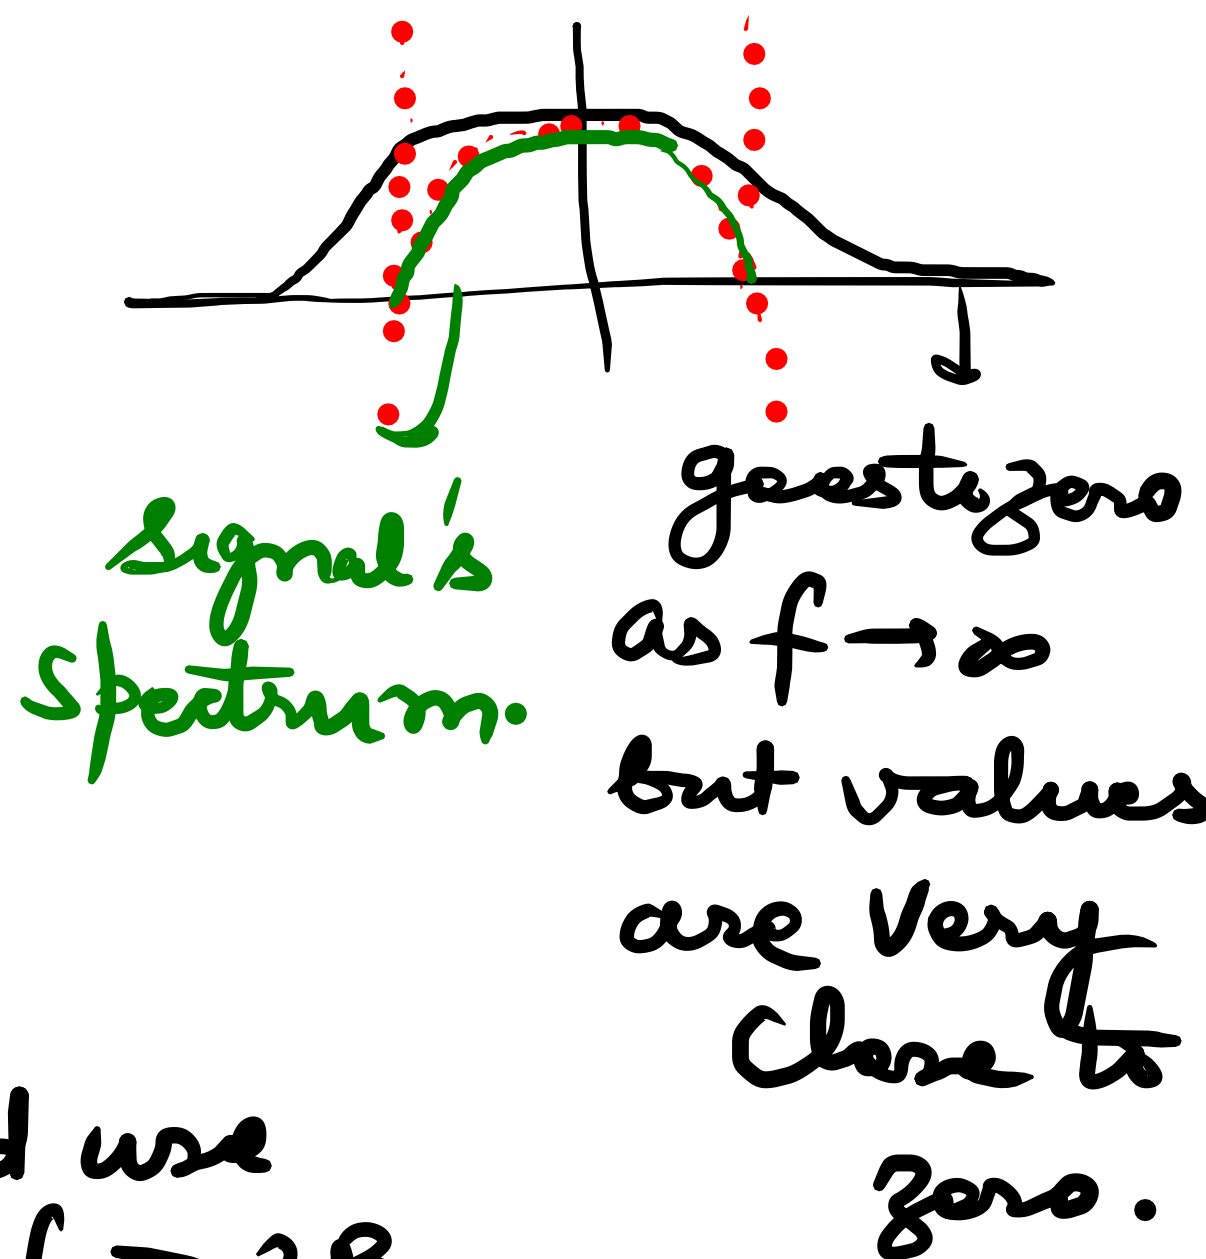 signal's
spectrum.
goes to zero
as f → ∞
but values
are very
close to
zero.
use